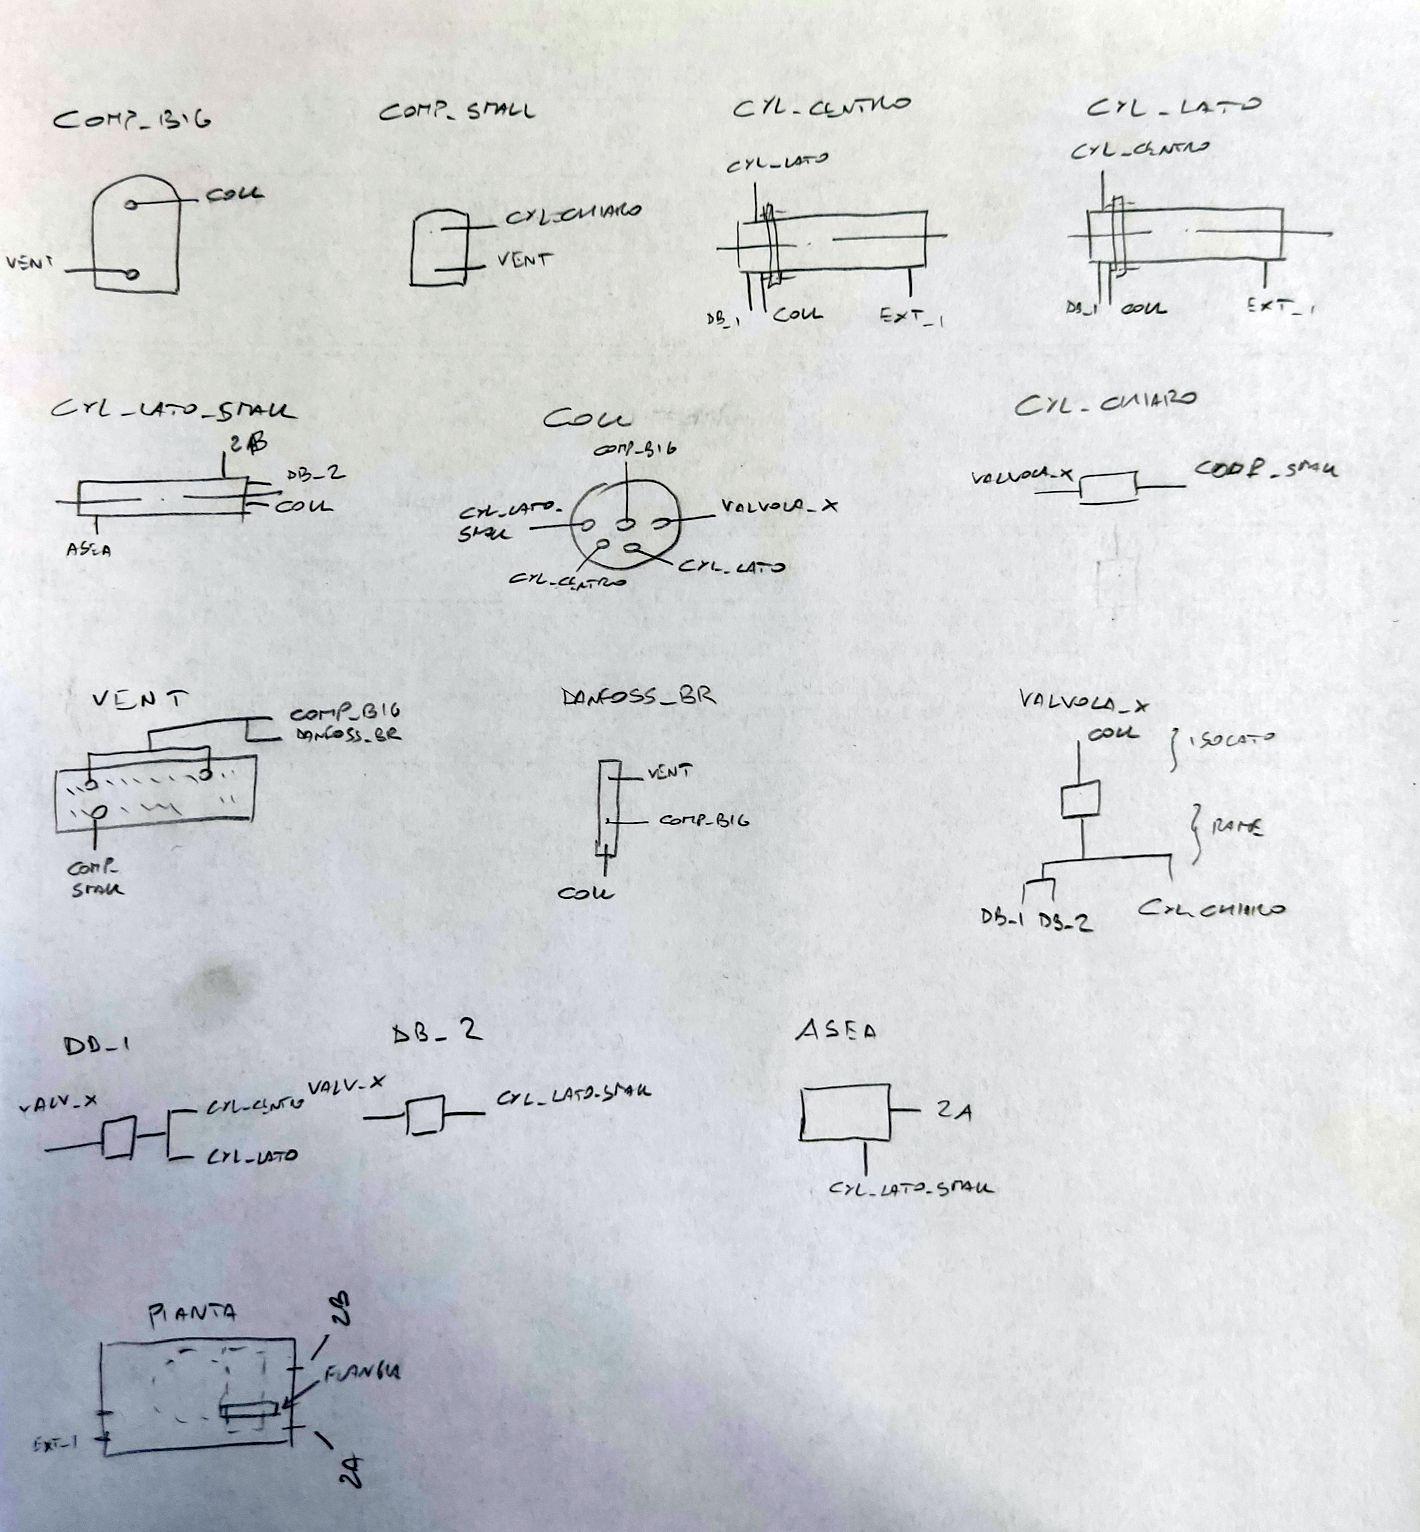 COMP_BIG
COMP_SMALL
CYL_CENTRO
CYL_LATO
COLL
VENT
CYL_CHIARO
VENT
CYL_LATO
DB_1
COLL
EXT_1
CYL_CENTRO
DB_1
COLL
EXT_1
CYL_LATO_SMALL
2B
DB_2
COLL
ASEA
COLL
COMP_BIG
CYL_LATO_
SMALL
VALVOLA_X
CYL_CENTRO
CYL_LATO
CYL_CHIARO
VALVOLA_X
COMP_SMALL
VENT
COMP_BIG
DANFOSS_BR
COMP_
SMALL
DANFOSS_BR
VENT
COMP_BIG
COLL
VALVOLA_X
COLL
ISOLATO
RAME
DB_1 DB_2
CYL CHIARO
DB_1
VALV_X
CYL_CENTRO
CYL_LATO
DB_2
VALV_X
CYL_LATO_SMALL
ASEA
2A
CYL_LATO_SMALL
PIANTA
2B
FLANGIA
EXT_1
2A